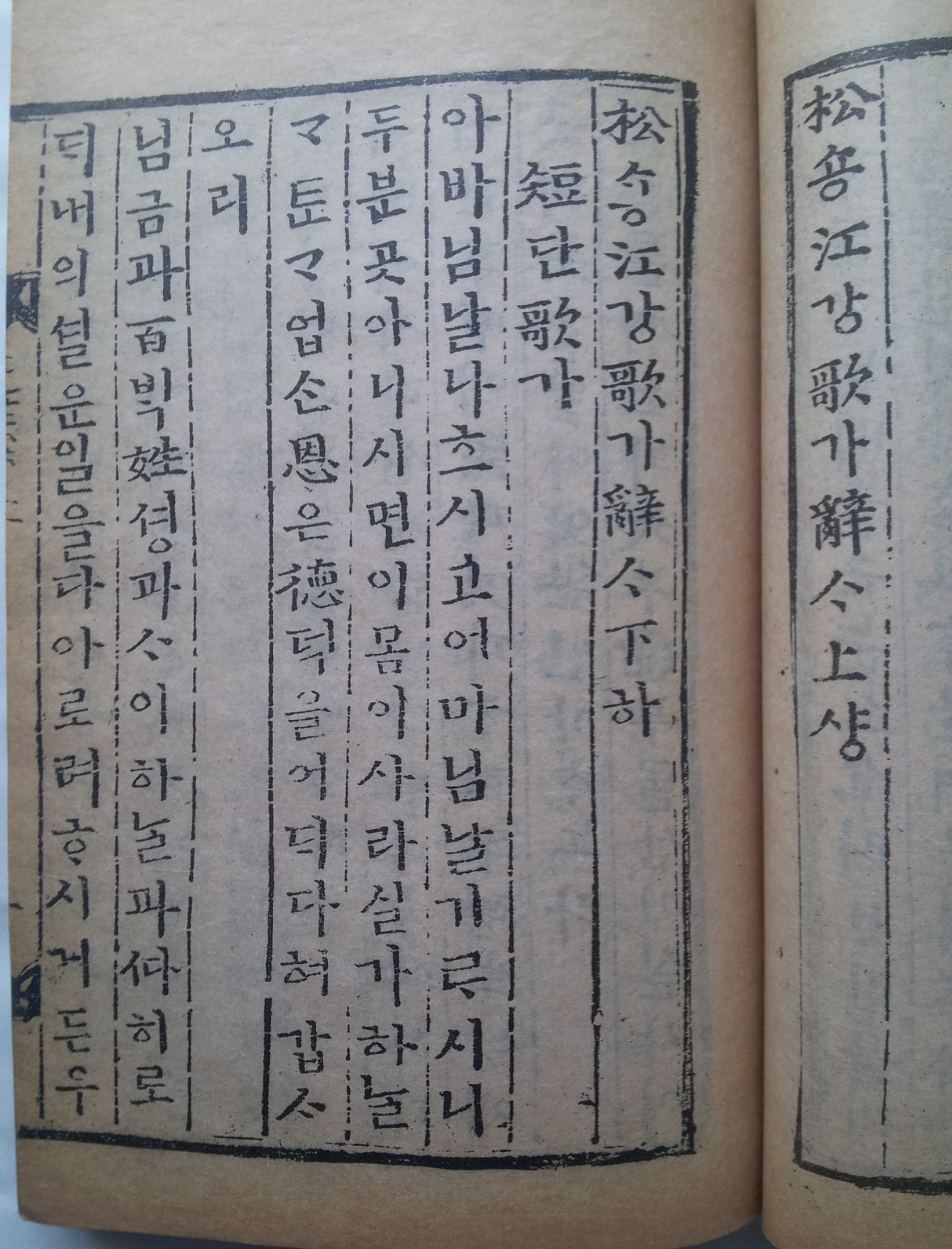 松숑江강歌가辭ᄉᆞ上샹
松숑江강歌가辭ᄉᆞ下하
短단歌가
아바님날나흐시고어마님날기ᄅᆞ시니
두분곳아니시면이몸이사라실가하ᄂᆞᆯ
ᄀᆞᄐᆞᆫᄀᆞ업ᄉᆞᆫ恩은德덕을어ᄃᆡ다혀갑ᄉᆞ
오리
님금과百ᄇᆡᆨ姓셩과ᄉᆞ이하ᄂᆞᆯ과ᄯᅡ히로
ᄃᆡ내의셜운일을다아로려ᄒᆞ시거든우